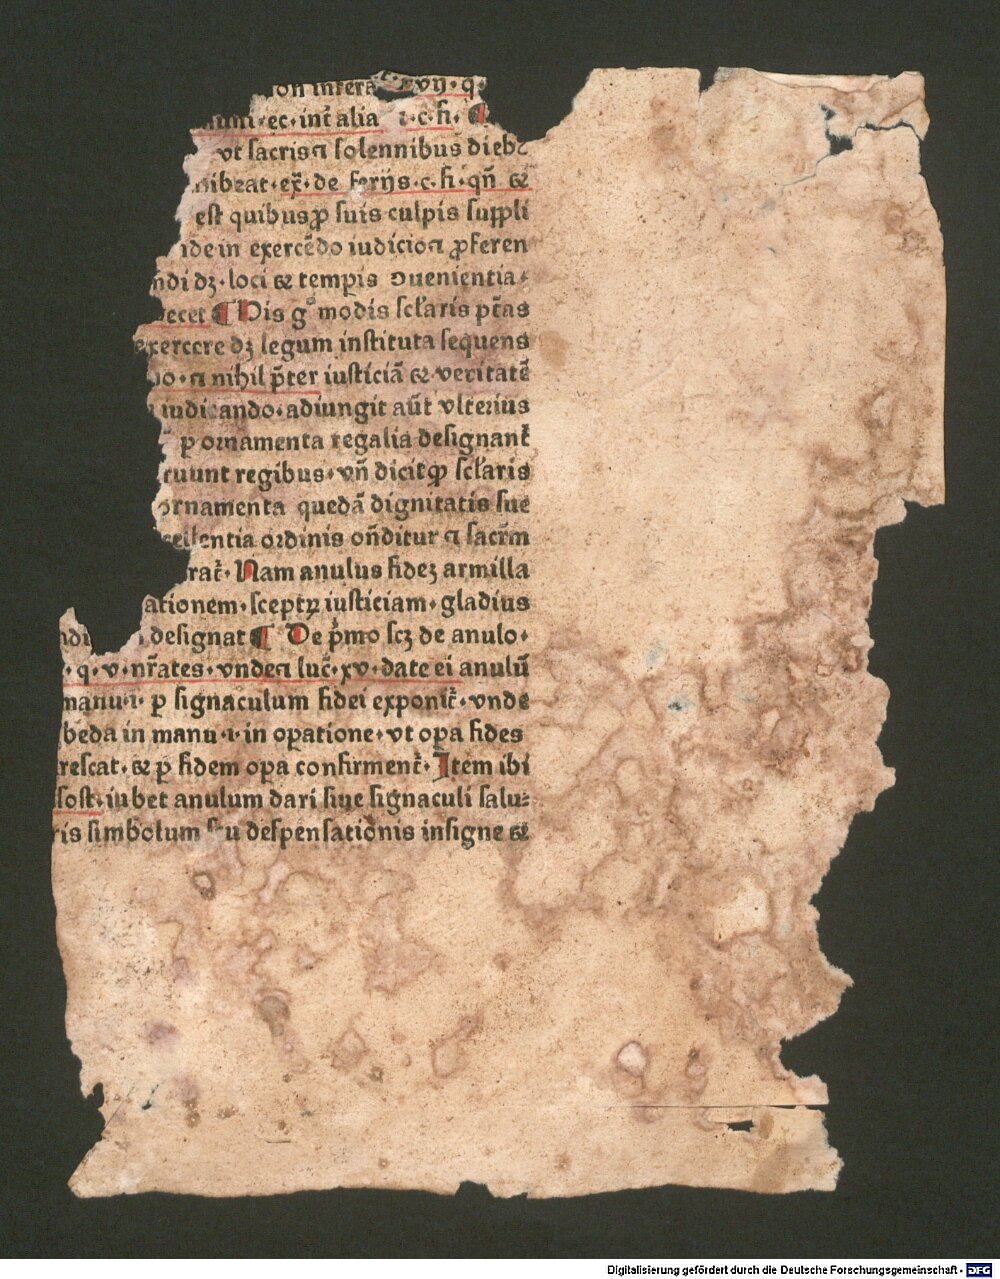 on infera xvij·q·
ec·int̄ alia ·i·c·fi· ¶
vt sacris ⁊ solennibus dieb⁊
hibeat·ex̄·de ferijs·c·fi·qn̄ ⁊
est quibus ꝓ suis culpis suppli
ide in exercēdo iudicio ⁊ ꝓferen
ndi dꝫ·loci ⁊ tempis ꝯuenientia⸗
decet ¶ His gͦ modis scl̄aris ptās
exercere dꝫ legum instituta sequens
do·⁊ nihil p̄ter iusticiā ⁊ veritatē
iudicando·adiungit aūt vlterius
ꝑ ornamenta regalia designant̄
buunt regibus·vn̄ dicit ꝙ scl̄aris
ornamenta quedā dignitatis sue
cellentia ordinis on̄ditur ⁊ sacr̄m
rat̄· Nam anulus fideꝫ armilla
ationem·sceptꝝ iusticiam·gladius
designat ¶ De p̄mo scꝫ de anulo·
·q·v·nr̄ates·vnde ⁊ luc̄·xv·date ei anulū
manu·i· ꝑ signaculum fidei exponit̄·vnde
beda in manu·i·in oꝑatione·vt oꝑa fides
rescat·⁊ ꝑ fidem oꝑa confirment̄·Item ibi
fost·iubet anulum dari siue signaculi salu⸗
ris simbolum seu despensationis insigne ⁊
Digitalisierung gefördert durch die Deutsche Forschungsgemeinschaft - DFG